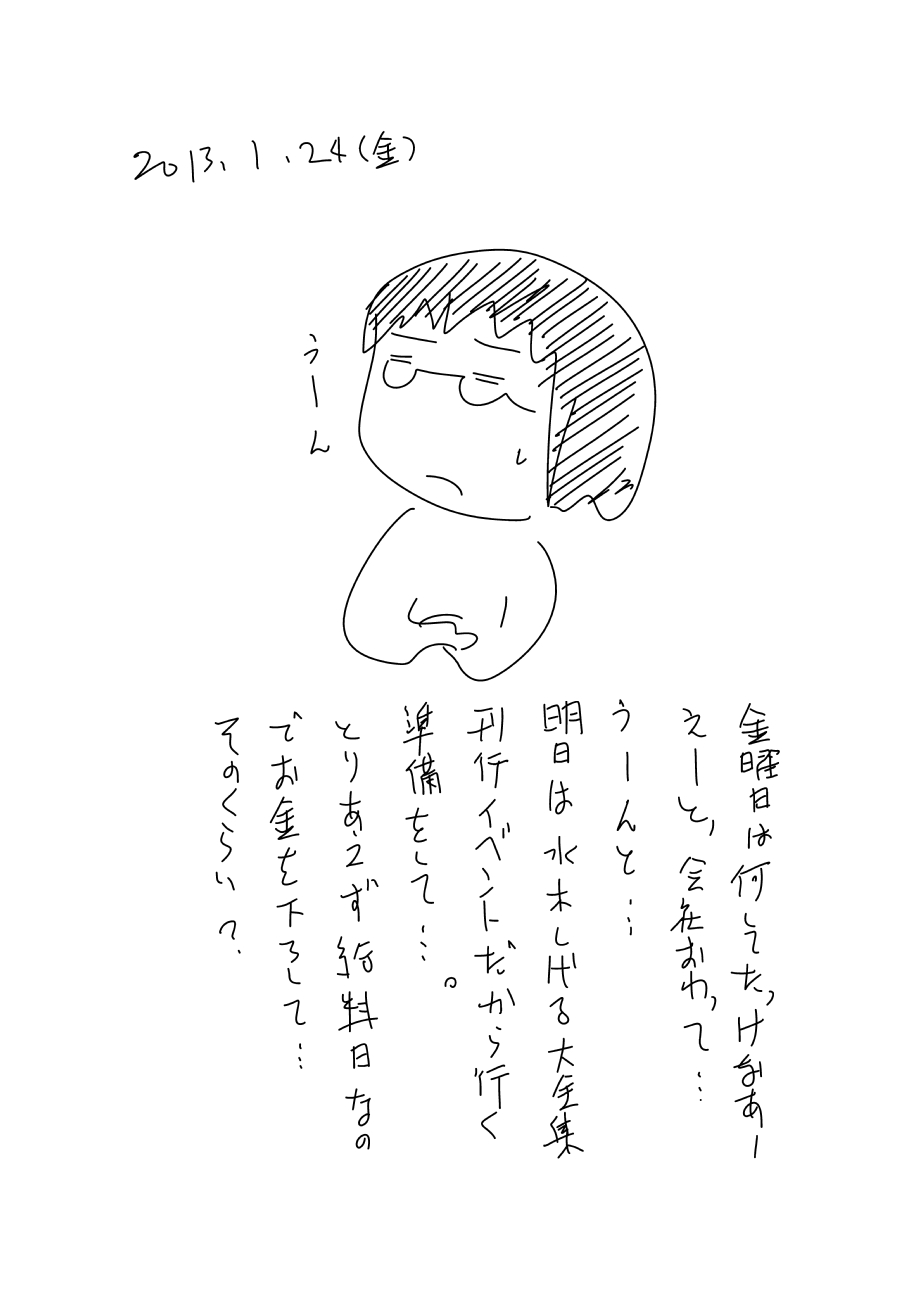 2013.1.24(金)
うーん
金曜日は何してたっけなあー
えーと,会社おわって…
うーんと…
明日は水木しげる大全集
刊行イベントだから行く
準備をして…。
とりあえず給料日なの
でお金を下ろして…
そのくらい?